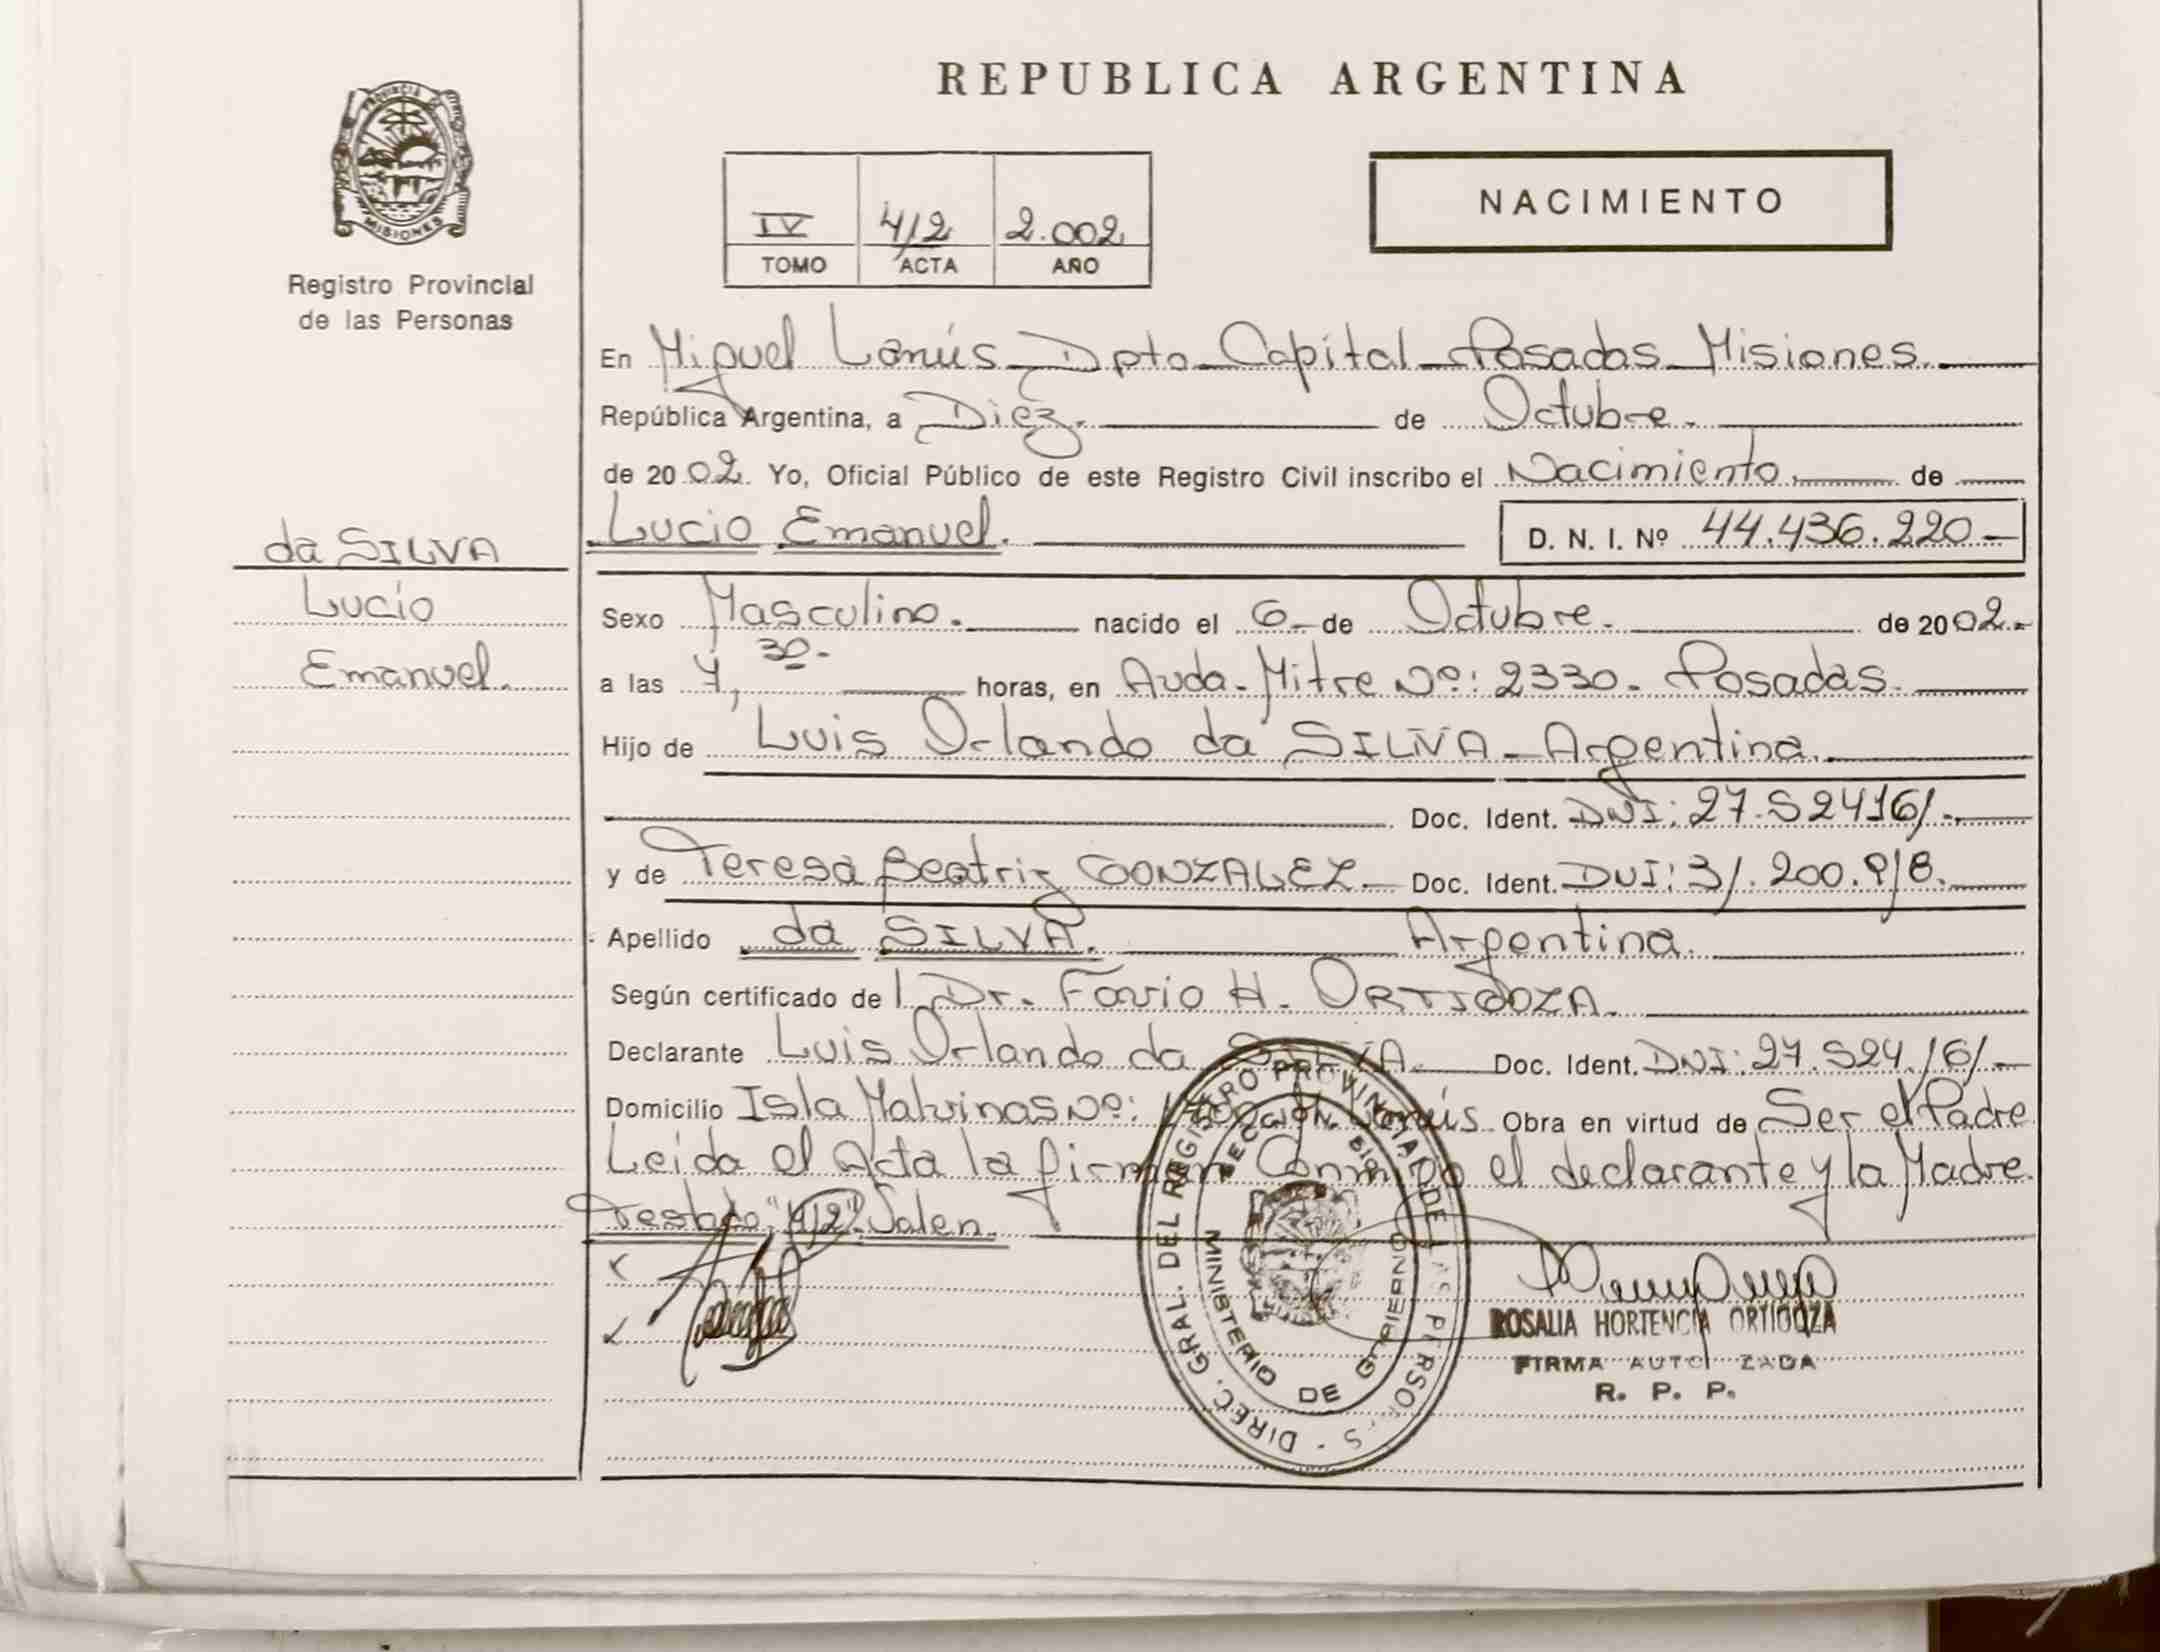 REPUBLICA ARGENTINA
PROVINCIA DE MISIONES
Registro Provincial
de las Personas
IV 412 2.002
TOMO ACTA AÑO
NACIMIENTO
En Miguel Lanús Dpto Capital Posadas Misiones.
República Argentina, a Diez. de Octubre.
de 2002. Yo, Oficial Público de este Registro Civil inscribo el Nacimiento. de
Lucio Emanuel. D. N. I. Nº 44.436.220
da SILVA
Lucio
Emanuel.
Sexo Masculino. nacido el 6 de Octubre. de 2002.
a las 7,30. horas, en Avda. Mitre Nº: 2330. Posadas.
Hijo de Luis Orlando da SILVA Argentina.
Doc. Ident. DNI: 27.524161.
y de Teresa Beatriz GONZALEZ Doc. Ident. DNI: 31.200.918.
Apellido da SILVA. Argentina.
Según certificado de l Dr. Favio H. ORTIGOZA.
Declarante Luis Orlando da SILVA. Doc. Ident. DNI: 27.524.161.
Domicilio Isla Malvinas Nº: Lanús Obra en virtud de Ser el Padre
Leída el Acta la firman Conmigo el declarante y la Madre
Testado "412" Valen.
DIREC. GRAL. DEL REGISTRO PROVINCIAL DE LAS PERSONAS
MINISTERIO DE GOBIERNO
ROSALIA HORTENCIA ORTIGOZA
FIRMA AUTORIZADA
R. P. P.